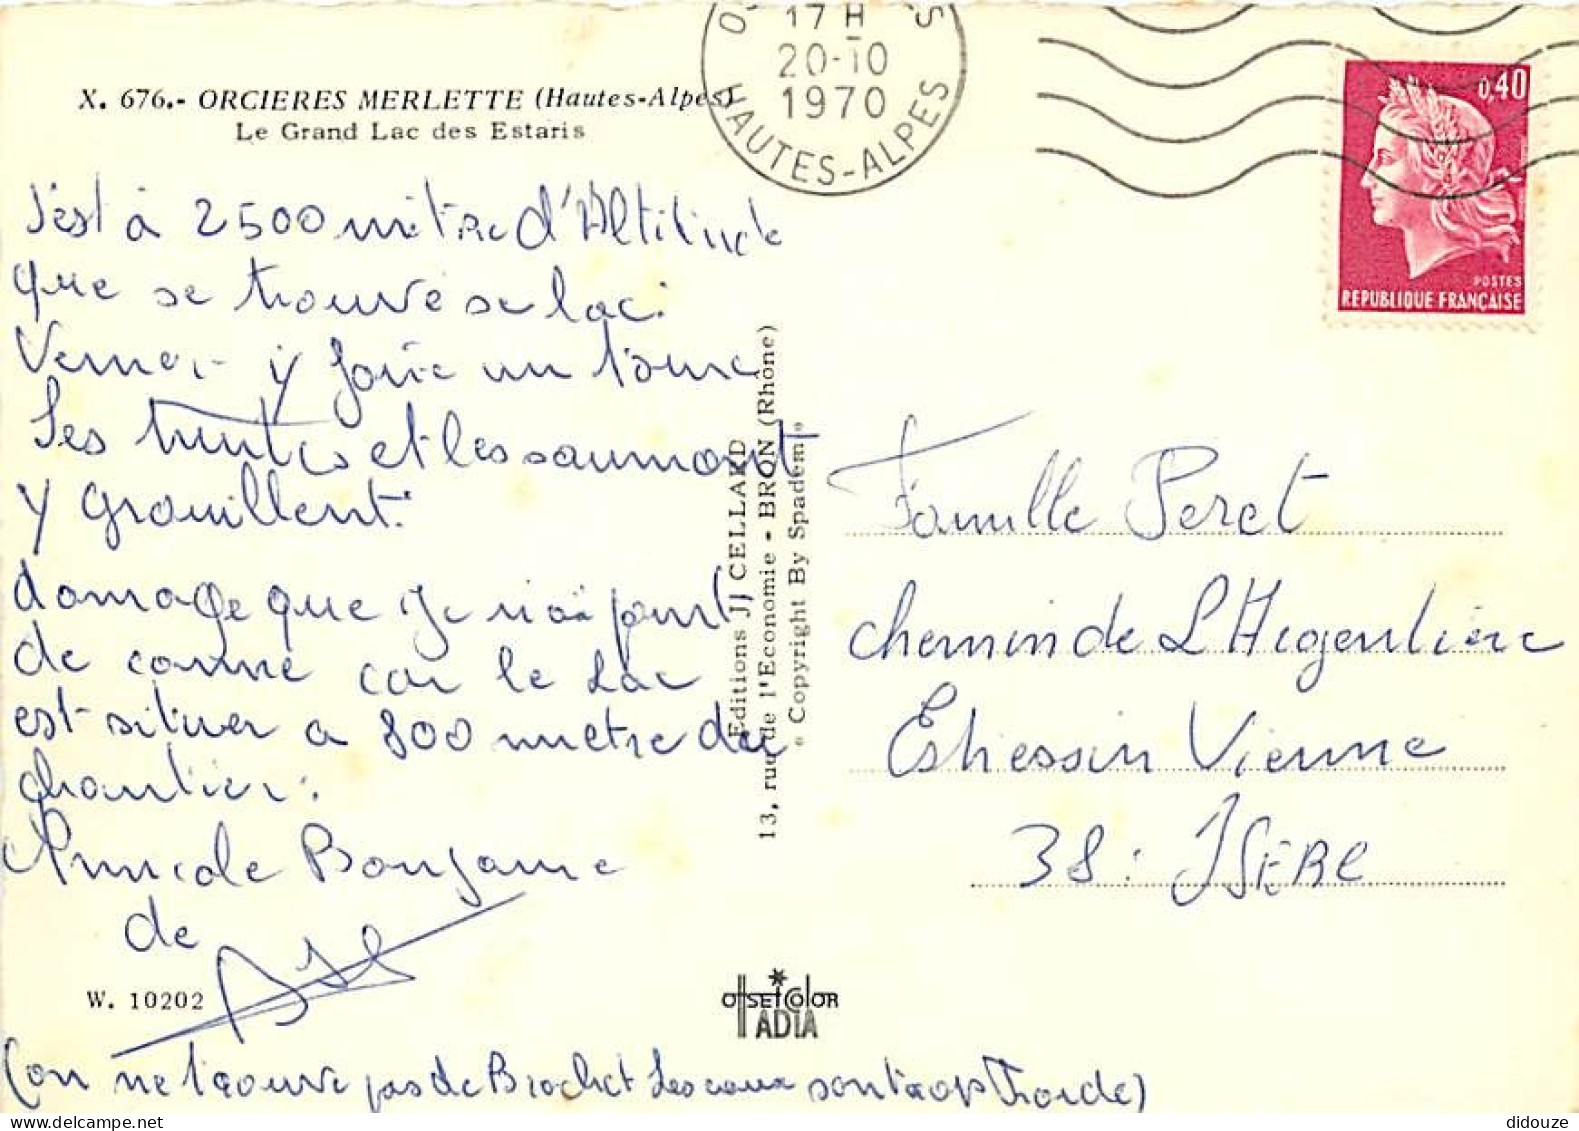 X. 676.- ORCIERES MERLETTE (Hautes-Alpes)
Le Grand Lac des Estaris
17 H
20-10
1970
HAUTES-ALPES
0,40
POSTES
REPUBLIQUE FRANÇAISE
s'est à 2500 mètre d'Altitude
que se trouve se lac.
Verner y faire un tour
Ses truites et les saumont
y grouillent.
domage que je n'ai point
de canne car le Lac
est situer a 800 metre du
chantier.
Amicale Bonjour
de
(on ne trouve pas de Brochet Les eaux sont trop Froide)
W. 10202
Editions JJ CELLARD
13, rue de l'Economie - BRON (Rhône)
« Copyright By Spadem »
OFFSET COLOR
IADIA
Famille Peret
chemin de L'Higenliere
Estressin Vienne
38 : ISERE
didouze